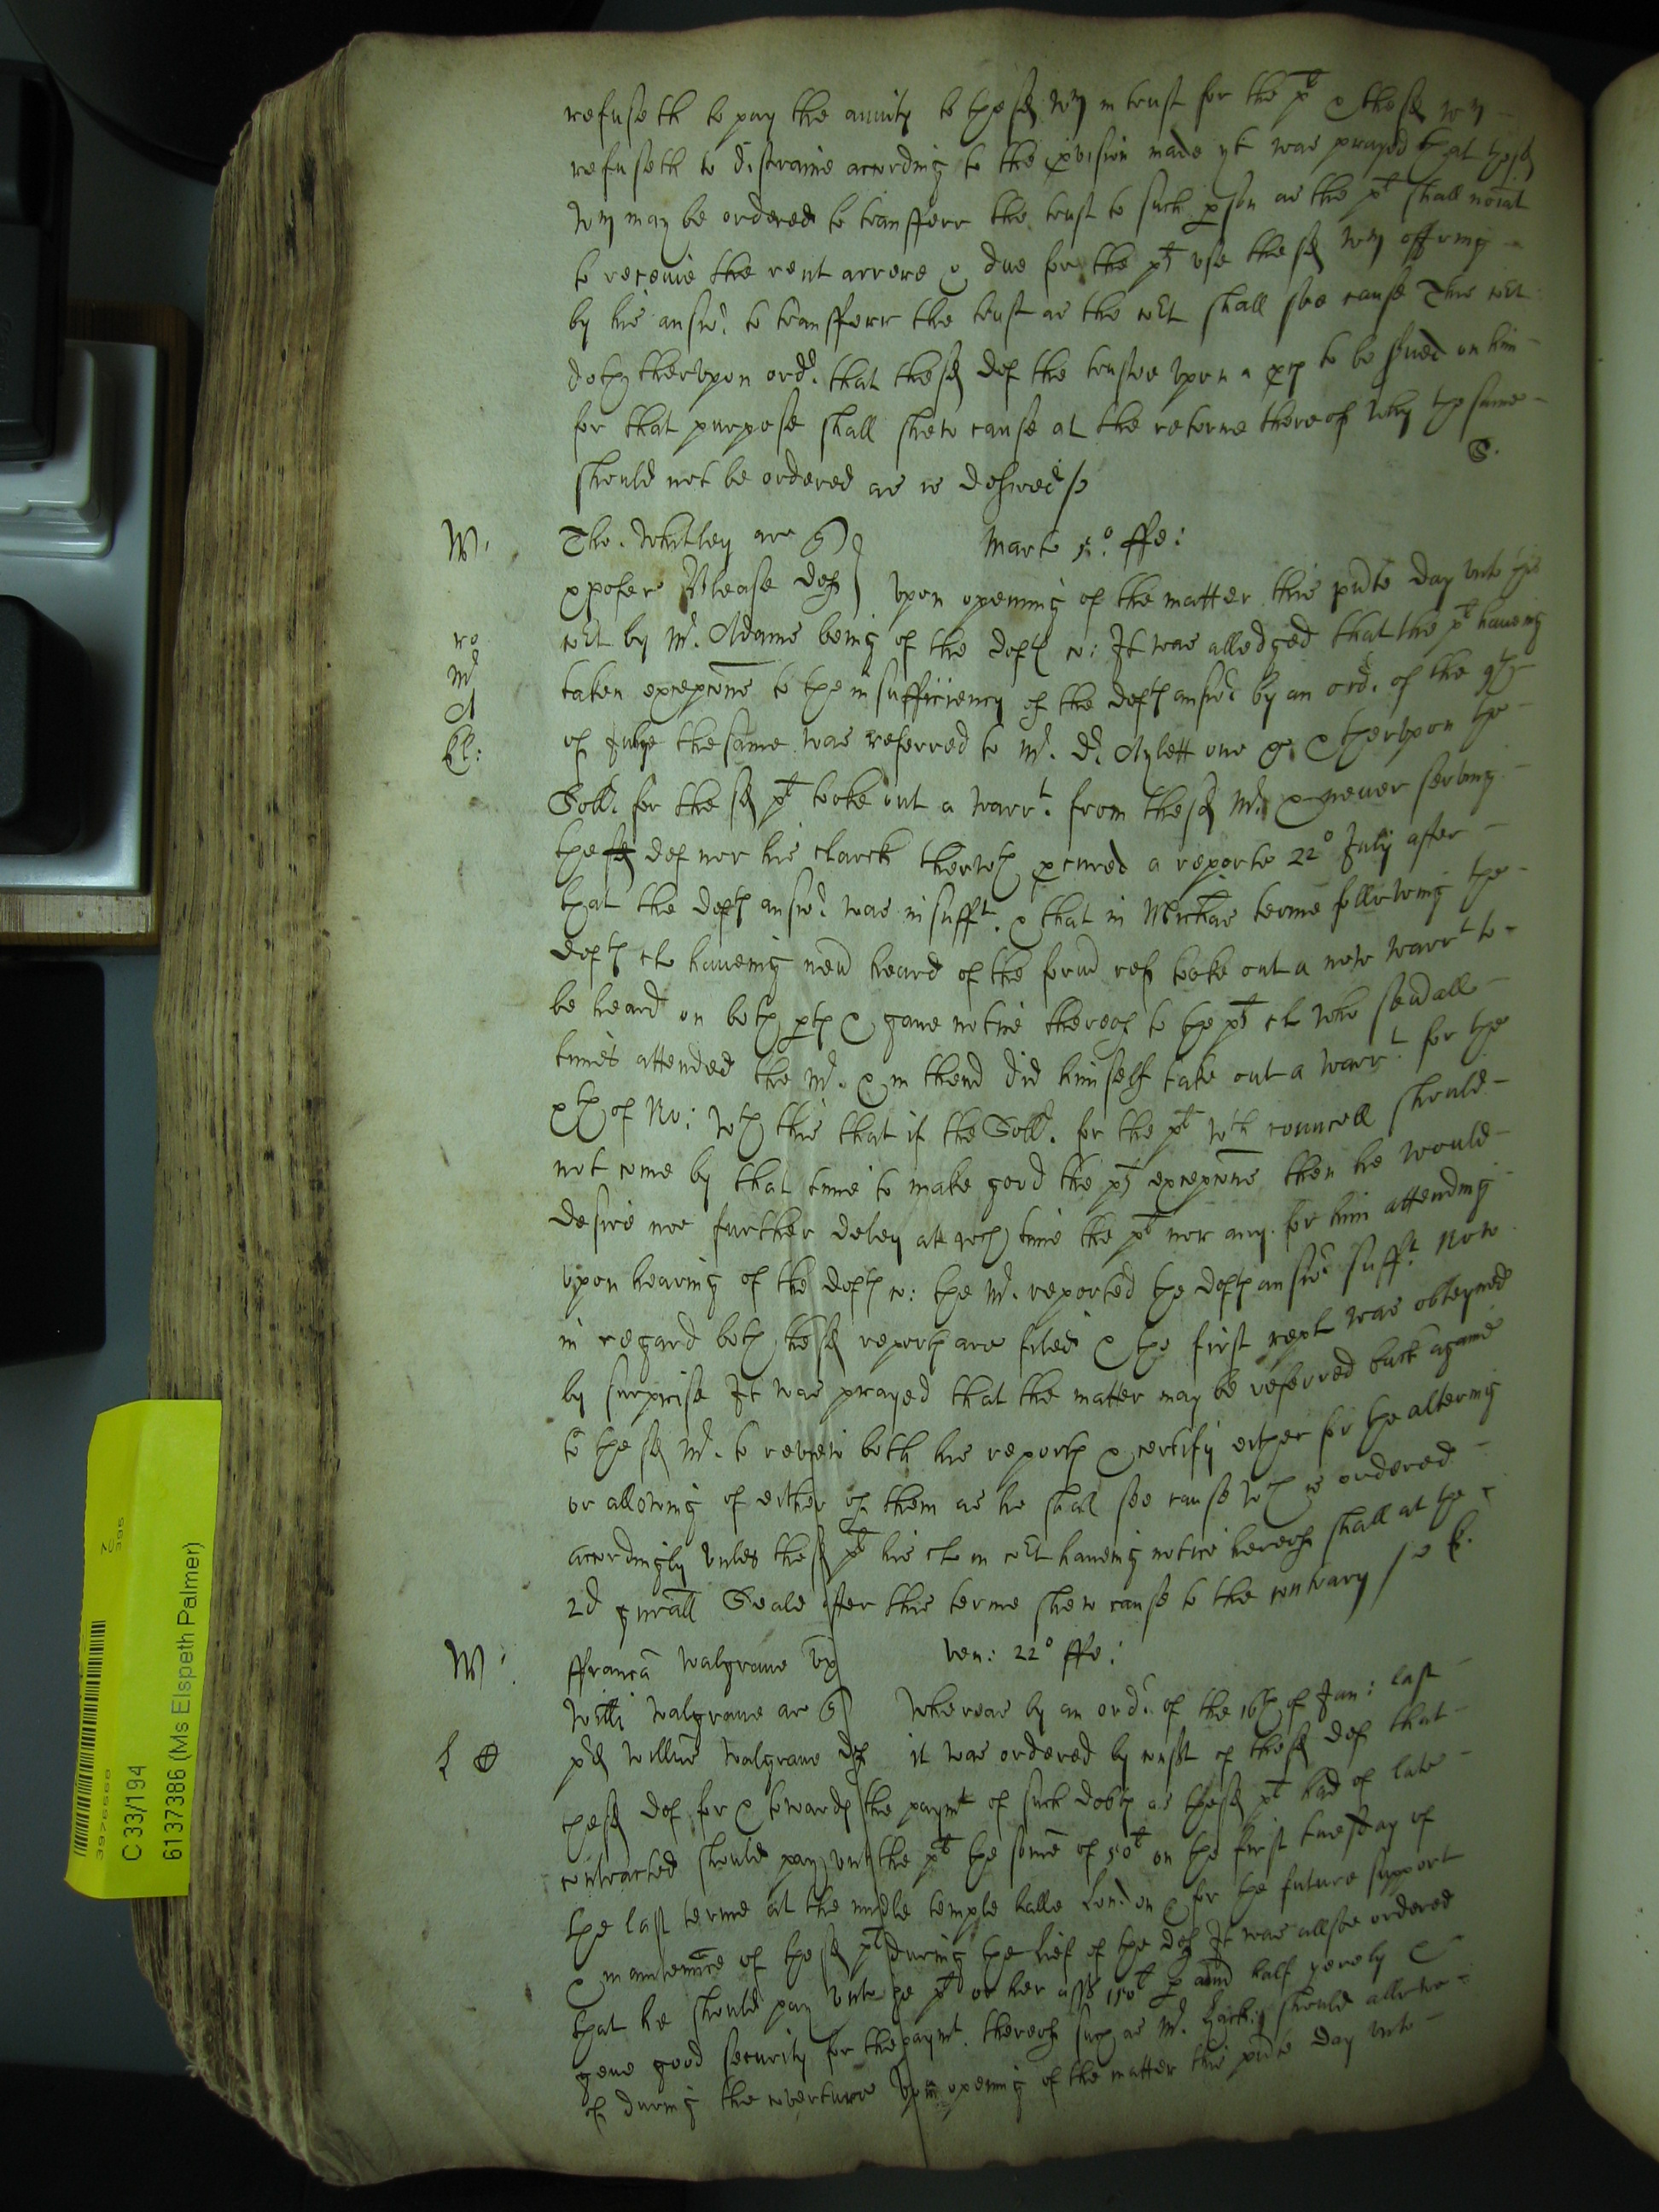 refuseth to pay the anuity to the sd Wm in trust for the plt & the sd Wm
refuseth to distraine according to the pvision made yt was prayed that the sd
Wm may be ordered to transferr the trust to such pson as the plt shall noiat
to receive the rent arrere & due for the plts use the sd Wm offring
by his answr to transferr the trust as the Cort shall see cause This Cort
doth therupon ordr that the sd def the trustee upon a to be srved on him
for that purpose shall shew cause at the retorne thereof why the same
should not be ordered as is desired /
W. Tho. Whitley ar Marte ffe:
xpofer Blease def Upon opening of the matter this pnte day unto the
Cort by Mr. Adams being of the defts co: It was alledged that the plt haveing
re
Mr
A
bl:
taken excepcons to the insufficiency of the defts answr by an ordr. of the
of the same was referred to Mr. Dr. Aylett one & therupon the
Sollr. for the sd plt tooke out a warrt. from the sd Mr. & never serving
the sd def nor his clarck therwth pcured a reporte 22o July after
that the defts answr was insufft. & that in Michas terme following the
defts clo haveing newe heard of the form ref tooke out a new warrt to
be heard on both pts & gave notice thereof to the plts clo who sevall
times attended the Mr. & in thend did himself take out a warrt. for the
xth of No: wth this that if the Sollr. for the plt wth councell should
not come by that time to make good the plts excepcons then he would
desire noe further deley att wch time the plt nor any for him attending
upon hearing of the defts co: the Mr. reported the defts answr sufft. Now
in regard both the sd reports are filed & the first rept was obteyned
by surprise It was prayed that the matter may be referred back againe
to the sd Mr. to review both his reports & certify either for the altering
or allowing of either of them as he shal see cause wch is ordered
accordingly unles the sd plt his clo in Cort haveing notice hereof shall at the
2d gnrall Seale after this terme shew cause to the contrary /
W: ffranca Walgrave Ux Ven: 22o ffe:
Willi Walgrave ar Whereas by an ordr. of the 16th of Jan: last
pd Willm Walgrave def it was ordered by consst of the sd def that
the sd def for & towards the paymt of such debts as the sd plt had of late
contracted should pay unto the plt the some of 50l on the first tuesday of
the last terme at the midle temple halle London & for the future support
& maintennce of the sd plt during the lief of the def It was allsoe ordered
that he should pay unto the plt or her ass 150l p annu half yerely &
geve good security for the paymt. thereof such as Mr. should allowe
of during the coverture Upon opening of the matter this pnte day unto
C 33/194
6137386 (Ms Elspeth Palmer)